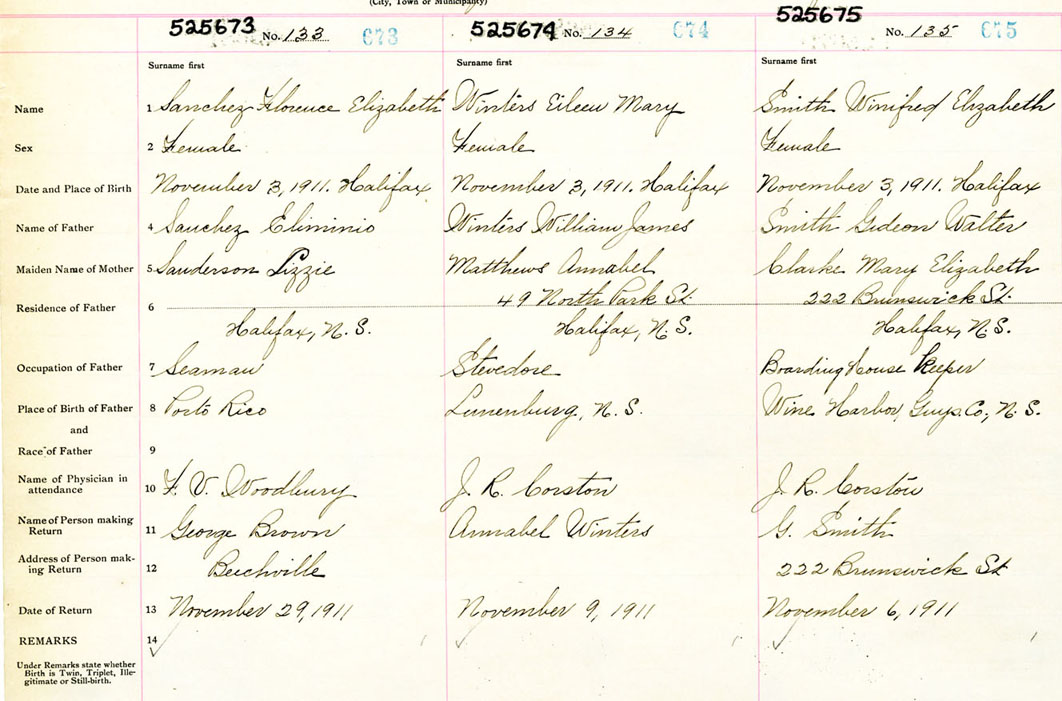 (City, Town or Municipality)
525673 No. 133 C73 525674 No. 134 C74 525675 No. 135 C75
Surname first Surname first Surname first
Name 1 Sanchez Florence Elizabeth Winters Eileen Mary Smith Winifred Elizabeth
Sex 2 Female Female Female
Date and Place of Birth 3 November 3, 1911. Halifax November 3, 1911. Halifax November 3, 1911. Halifax
Name of Father 4 Sanchez Eliminio Winters William James Smith Gideon Walter
Maiden Name of Mother 5 Sanderson Lizzie Matthews Annabel Clarke Mary Elizabeth
49 North Park St. 222 Brunswick St.
Residence of Father 6
Halifax, N.S. Halifax, N.S. Halifax, N.S.
Occupation of Father 7 Seaman Stevedore Boarding house Keeper
Place of Birth of Father 8 Porto Rico Lunenburg, N.S. Wine Harbor, Guys. Co; N.S.
and
Race of Father 9
Name of Physician in
attendance 10 F. V. Woodbury J. R. Corston J. R. Corston
Name of Person making
Return 11 George Brown Annabel Winters G. Smith
Address of Person mak-
ing Return 12 Beechville 222 Brunswick St
Date of Return 13 November 29, 1911 November 9, 1911 November 6, 1911
REMARKS 14
Under Remarks state whether
Birth is Twin, Triplet, Ille-
gitimate or Still-birth.